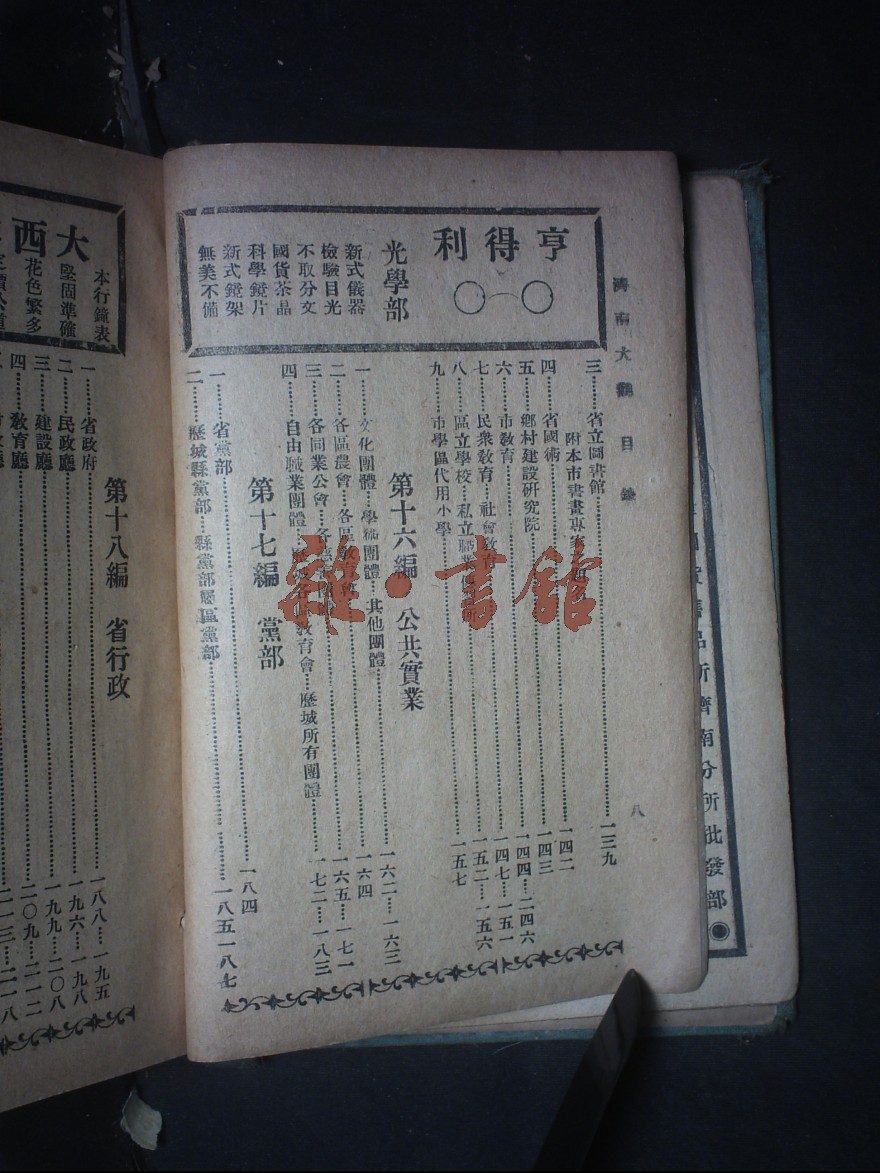 濟南大觀 目錄
八
亨得利
光學部
新式儀器
檢驗目光
不取分文
國貨茶晶
科學鏡片
新式鏡架
無美不備
三……省立圖書館……一三九
附本市書畫專家
四……省國術……一四二
五……鄉村建設研究院……一四三
六……市教育……一四四……一四六
七……民衆教育……社會教育……一四七……一五一
八……區立學校……私立職業……一五二……一五六
九……市學區代用小學……一五七
第十六編 公共實業
一……文化團體……學術團體……其他團體……一六二……一六三
二……各區農會……各區教育會……一六四
三……各同業公會……各……一六五……一七一
四……自由職業團體……教育會……歷城所有團體……一七二……一八三
第十七編 黨部
一……省黨部……一八四
二……歷城縣黨部……縣黨部屬區黨部……一八五一八七
大西
本行鐘表
堅固準確
花色繁多
第十八編 省行政
一……省政府……一八八……一九五
二……民政廳……一九六……一九八
三……建設廳……一九九……二〇八
四……教育廳……二〇九……二一二
二一三……二一八
濟南分所批發部
雜·書館